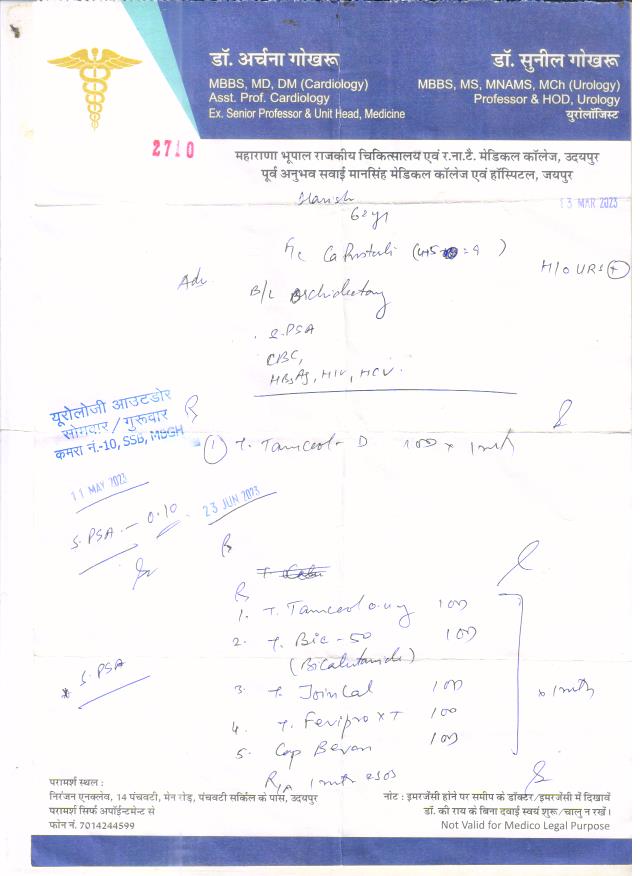 डॉ. अर्चना गोखरू
MBBS, MD, DM (Cardiology)
Asst. Prof. Cardiology
Ex. Senior Professor & Unit Head, Medicine
डॉ. सुनील गोखरू
MBBS, MS, MNAMS, MCh (Urology)
Professor & HOD, Urology
यूरोलॉजिस्ट
2710
महाराणा भूपाल राजकीय चिकित्सालय एवं र.ना.टै. मेडिकल कॉलेज, उदयपुर
पूर्व अनुभव सवाई मानसिंह मेडिकल कॉलेज एवं हॉस्पिटल, जयपुर
13 MAR 2023
Harish
62 yr
Ca Prostate
H/O URS +
Adv
B/L Orchidectomy
S. PSA
CBC,
HBsAg, HIV, HCV.
यूरोलॉजी आउटडोर
सोमवार / गुरूवार
कमरा नं.-10, SSB, MBGH
1 T. D x 1 mth
11 MAY 2023
S. PSA — 0.10
23 JUN 2023
1. T.
2. T. Bic - 50
(Bicalutamide)
3. T. Join Cal
4. T. Feripro XT
5. Cap
x 1 mth
* S. PSA
परामर्श स्थल :
निरंजन एनक्लेव, 14 पंचवटी, मेन रोड़, पंचवटी सर्किल के पास, उदयपुर
परामर्श सिर्फ अपॉईन्टमेन्ट से
फोन नं. 7014244599
नोट : इमरजेंसी होने पर समीप के डॉक्टर/इमरजेंसी में दिखावें
डॉ. की राय के बिना दवाई स्वयं शुरू/चालु न रखें।
Not Valid for Medico Legal Purpose